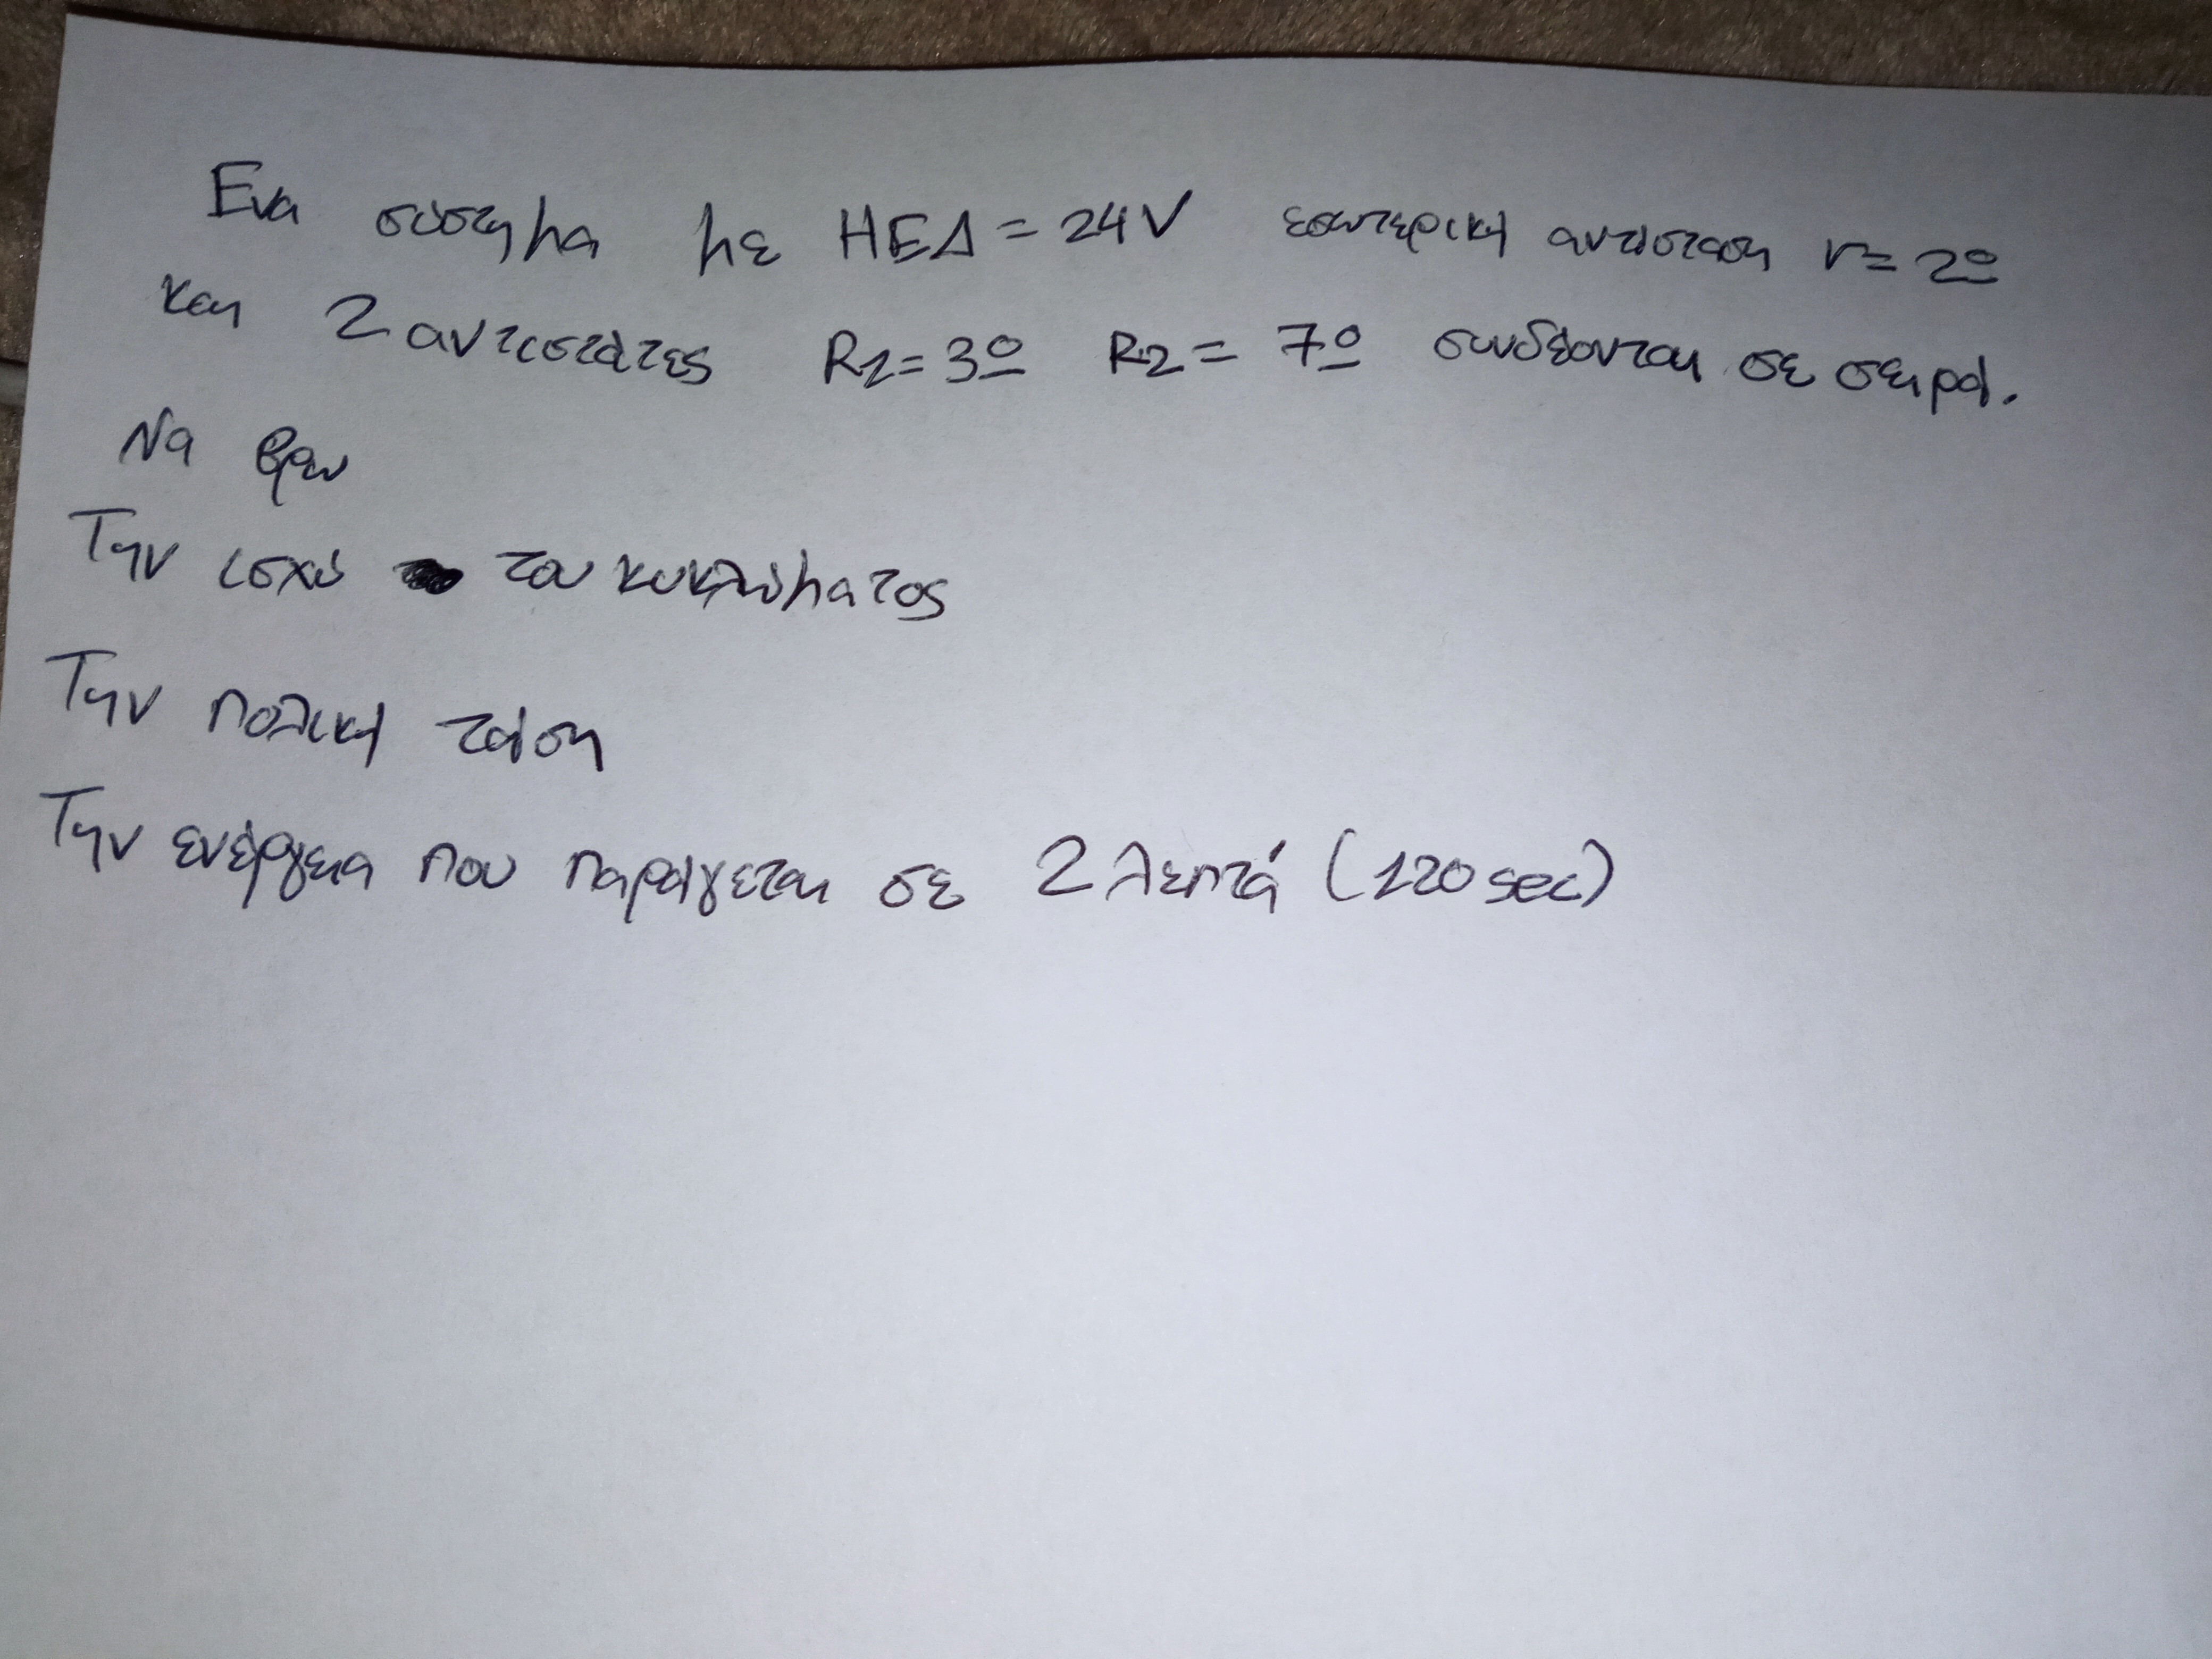 Ενα σύστημα με ΗΕΔ = 24V εσωτερική αντισταση r = 2Ω
και 2 αντιστάτες R1 = 3Ω R2 = 7Ω συνδέονται σε σειρά.
Να βρω
Την ισχύ του κυκλώματος
Την πολική τάση
Την ενέργεια που παράγεται σε 2 λεπτά (120 sec)